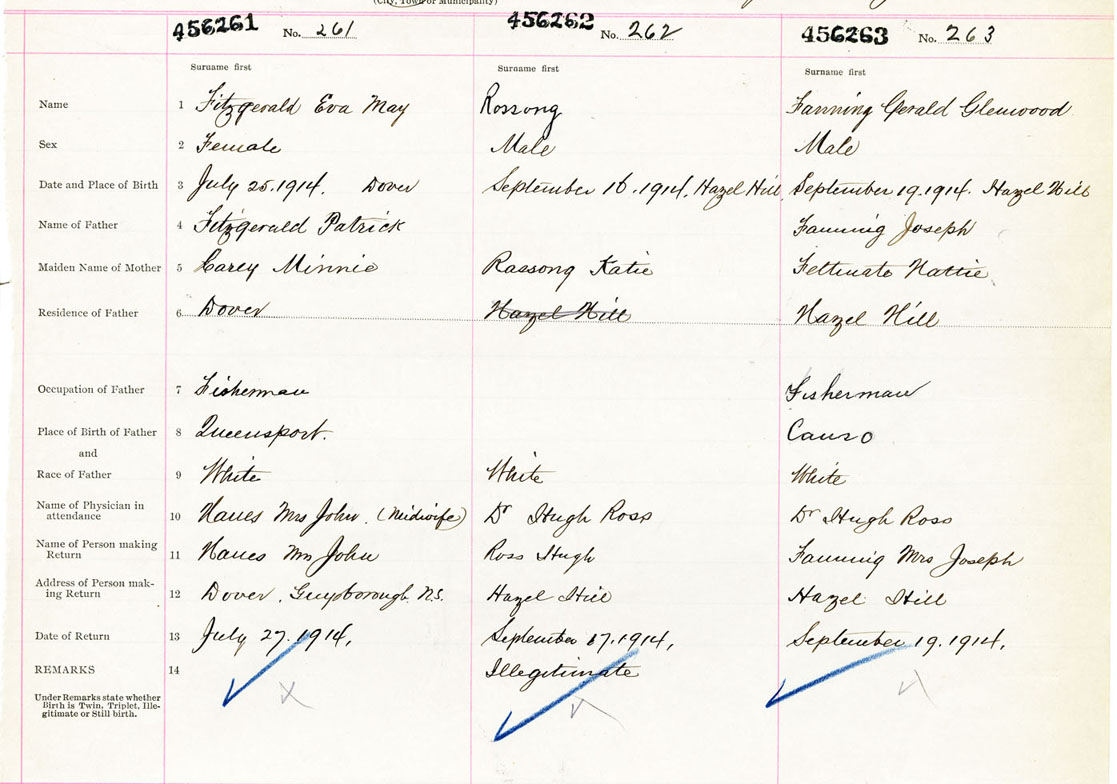 (City, Town or Municipality)
456261 No. 261 456262 No. 262 456263 No. 263
Surname first Surname first Surname first
Name 1 Fitzgerald Eva May Rossong Fanning Gerald Glenwood
Sex 2 Female Male Male
Date and Place of Birth 3 July 25.1914. Dover September 16.1914. Hazel Hill September 19.1914. Hazel Hill
Name of Father 4 Fitzgerald Patrick Fanning Joseph
Maiden Name of Mother 5 Carey Minnie Rassong Katie Hattie
Residence of Father 6 Dover Hazel Hill Hazel Hill
Occupation of Father 7 Fisherman Fisherman
Place of Birth of Father 8 Queensport. Canso
and
Race of Father 9 White White White
Name of Physician in
attendance 10 Mrs John. (Midwife) Dr Hugh Ross Dr Hugh Ross
Name of Person making
Return 11 John Ross Hugh Fanning Mrs Joseph
Address of Person mak-
ing Return 12 Dover. Guysborough N.S. Hazel Hill Hazel Hill
Date of Return 13 July 27.1914, September 17.1914, September 19.1914.
REMARKS 14 Illegitimate
Under Remarks state whether
Birth is Twin, Triplet, Ille-
gitimate or Still birth.